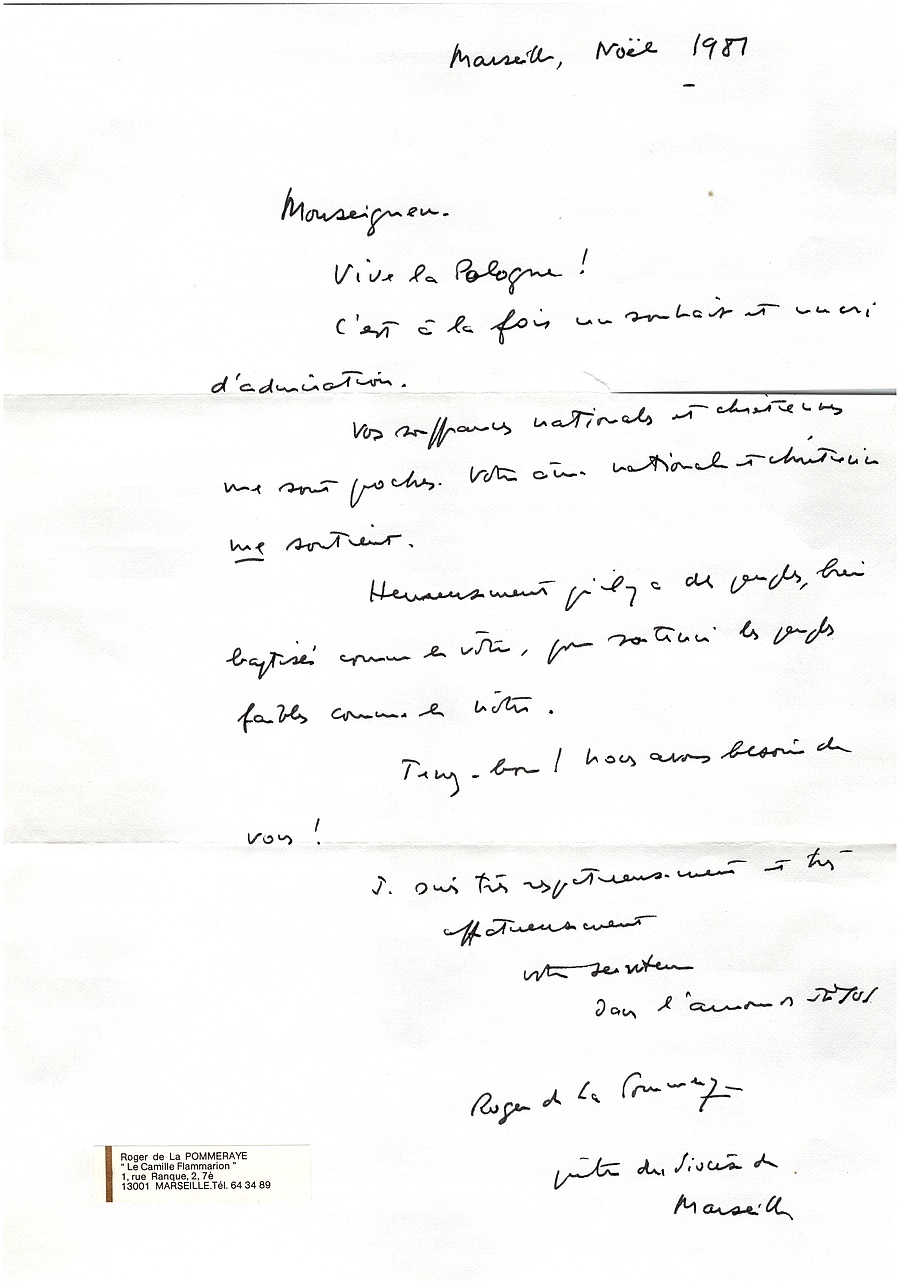 Marseille, Noël 1981
Monseigneur.
Vive la Pologne !
C'est à la fois un souhait et un cri
d'admiration.
Vos souffrances nationales et chrétiennes
me sont proches. Votre âme nationale et chrétienne
me soutient.
Heureusement qu'il y a des peuples, bien
baptisés comme le vôtre, pour soutenir les peuples
faibles comme le nôtre.
Tenez-bon ! Nous avons besoin de
vous !
Je suis très respectueusement et très
affectueusement
votre serviteur
dans l'amour de JÉSUS
Roger de La Pommeraye
prêtre du diocèse de
Marseille
Roger de La POMMERAYE
" Le Camille Flammarion "
1, rue Ranque, 2, 7è
13001 MARSEILLE.Tél. 64 34 89